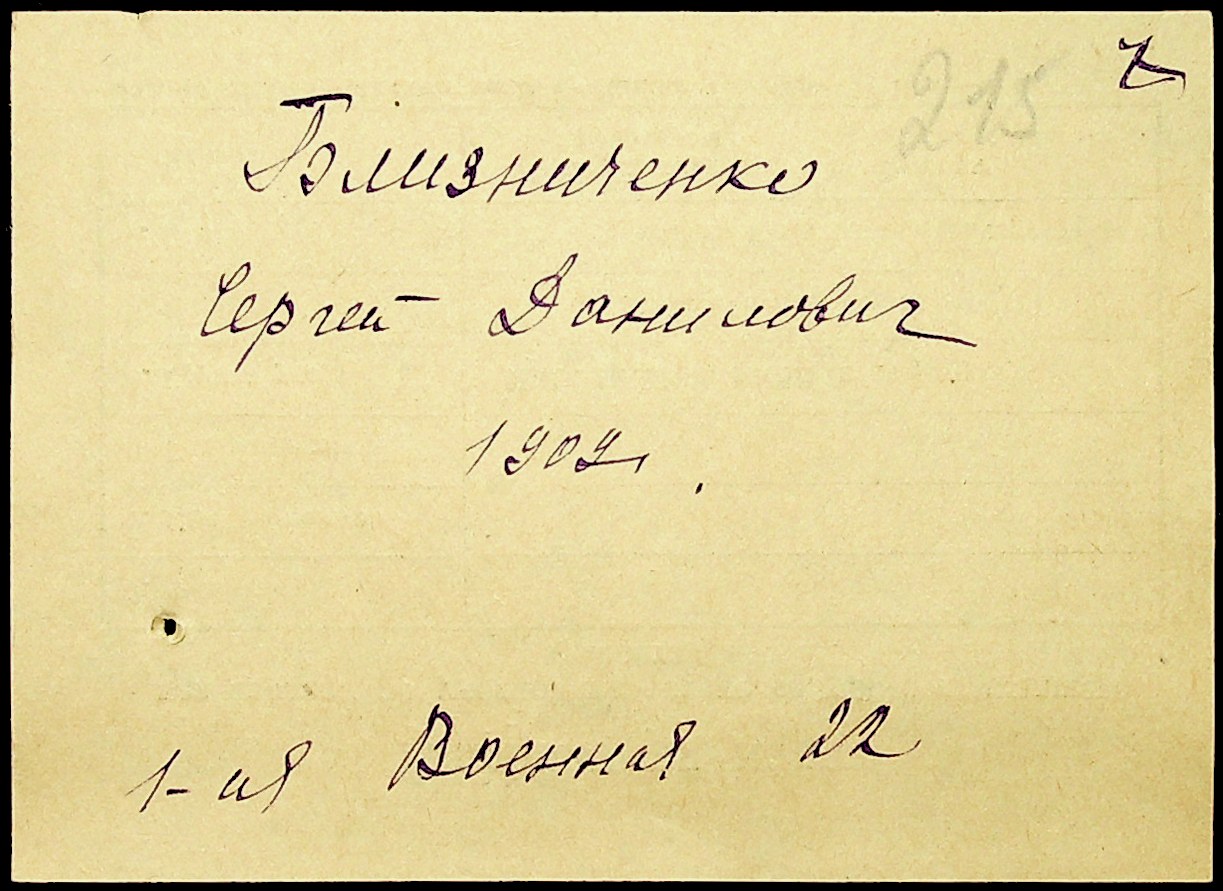 215
Близниченко
Сергей Данилович
1909
1-ая Военная 22